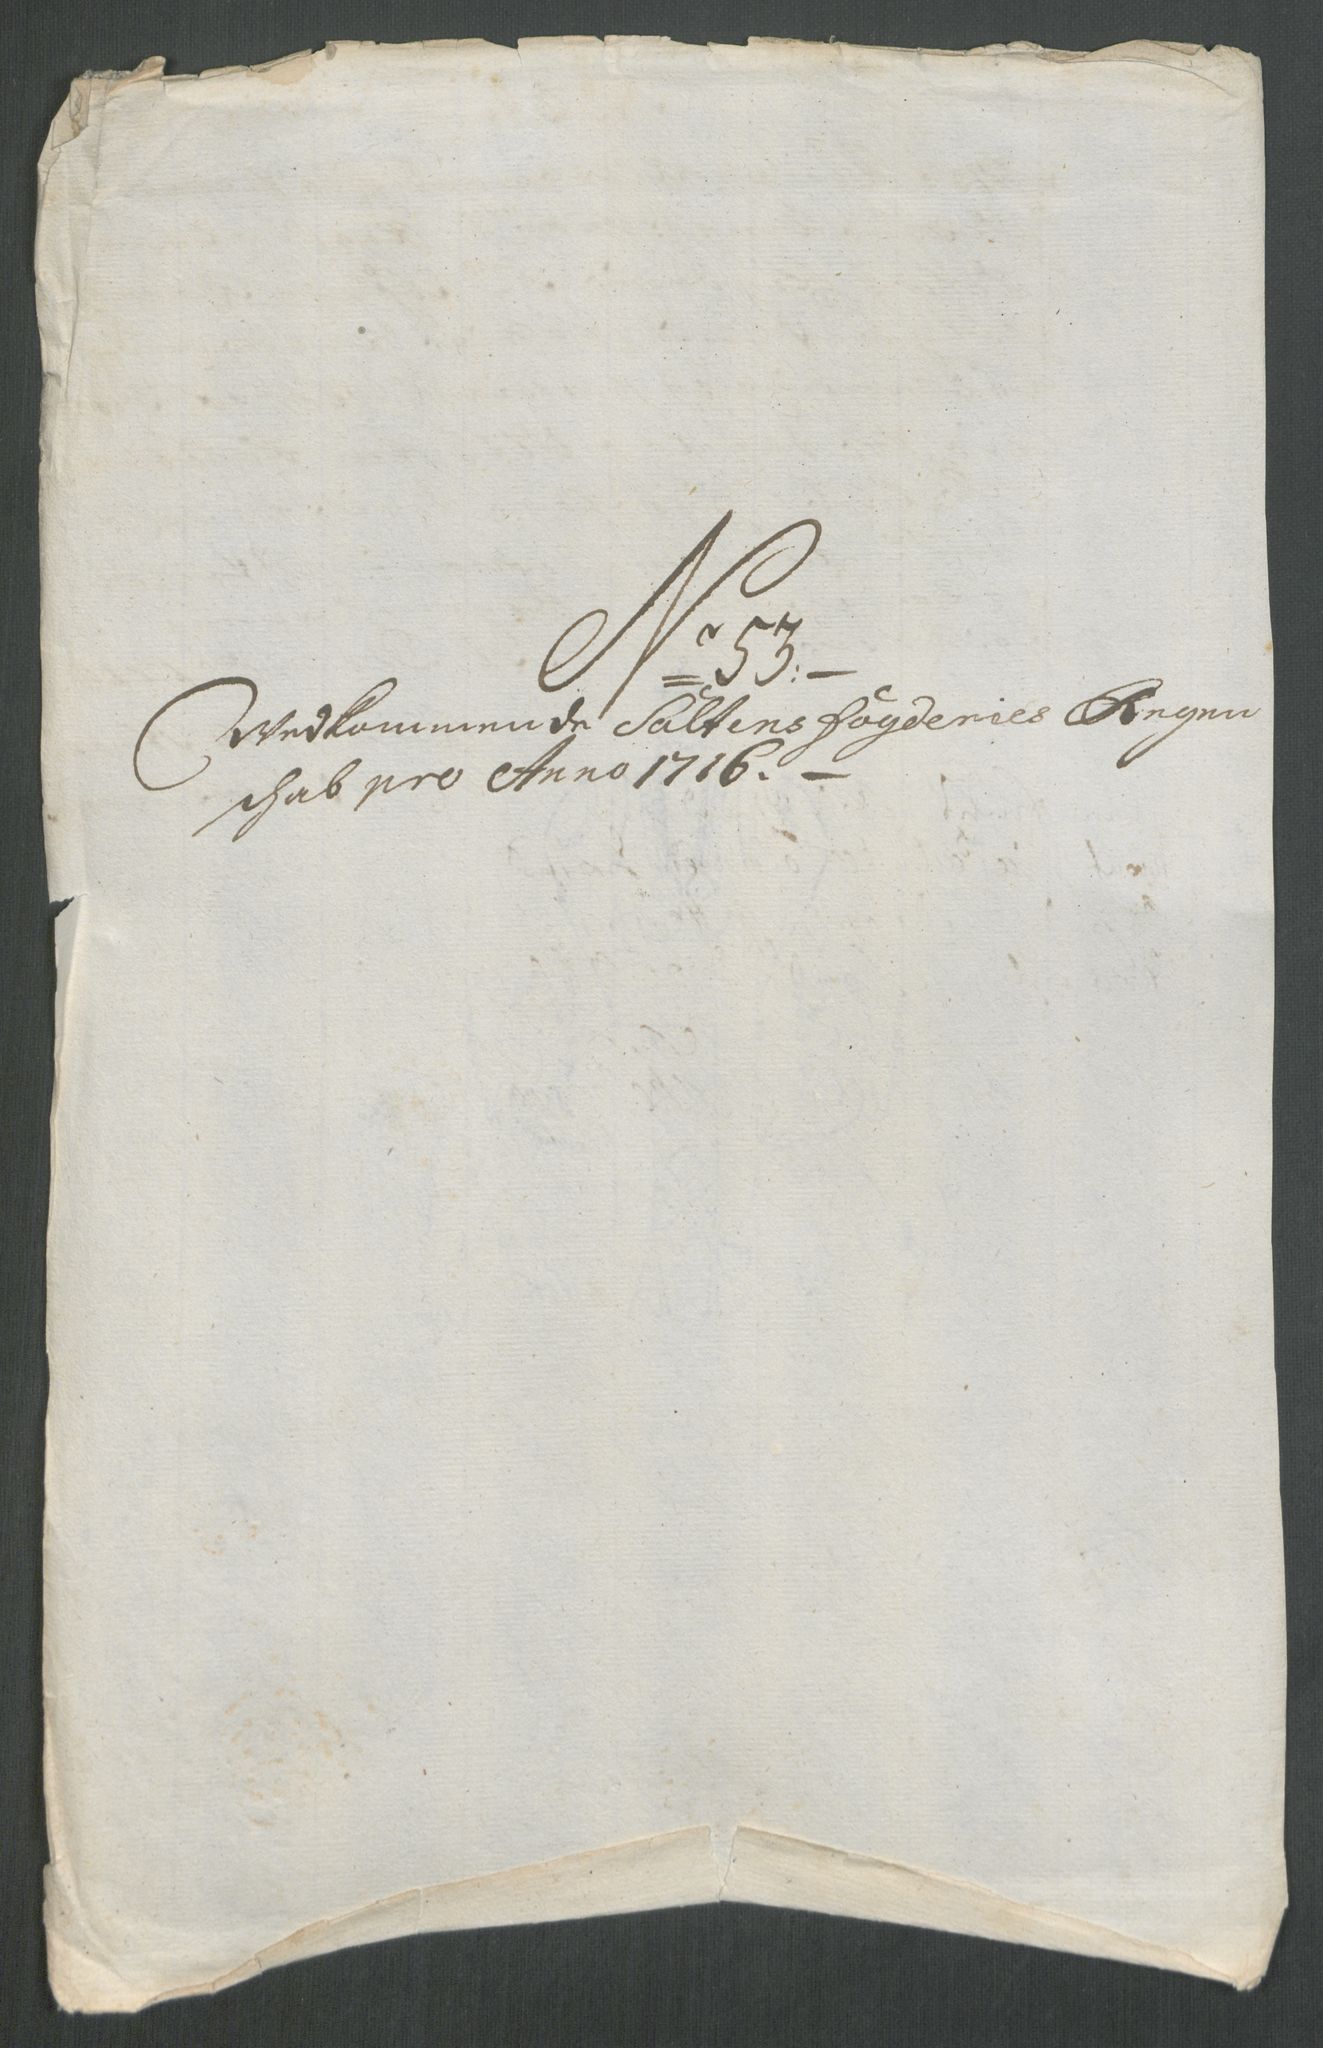 N<sup>o</sup> 53. —
Vedkommende Saltens fögderies Regen
schab pro Anno 1716. —